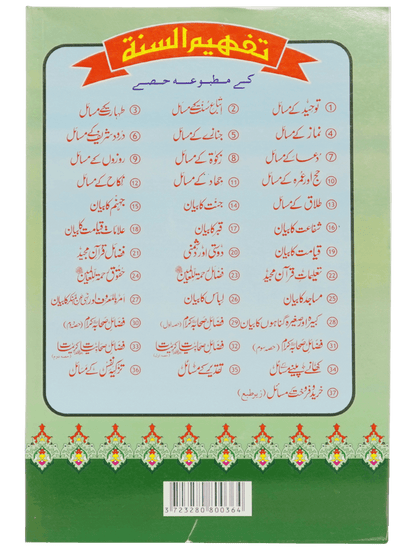 تفہیم السنۃ
کے مطبوعہ حصے
① توحید کے مسائل ② اتباع سنت کے مسائل ③ طہارت کے مسائل
④ نماز کے مسائل ⑤ جنازے کے مسائل ⑥ درود شریف کے مسائل
⑦ دعا کے مسائل ⑧ زکوٰۃ کے مسائل ⑨ روزوں کے مسائل
⑩ حج اور عمرہ کے مسائل ⑪ جہاد کے مسائل ⑫ نکاح کے مسائل
⑬ طلاق کے مسائل ⑭ جنت کا بیان ⑮ جہنم کا بیان
⑯ شفاعت کا بیان ⑰ قبر کا بیان ⑱ علامات قیامت کا بیان
⑲ قیامت کا بیان ⑳ دوستی اور دشمنی ㉑ فضائل قرآن مجید
㉒ تعلیمات قرآن مجید ㉓ فضائل رحمۃ للعالمین ㉔ حقوق رحمۃ للعالمین
㉕ مساجد کا بیان ㉖ لباس کا بیان ㉗ امر بالمعروف اور نہی عن المنکر کا بیان
㉘ کبیرہ اور صغیرہ گناہوں کا بیان ㉙ فضائل صحابہ کرام (حصہ اول) ㉚ فضائل صحابہ کرام (حصہ دوم)
㉛ فضائل صحابہ کرام (حصہ سوم) ㉜ فضائل صحابیات ㉝ فضائل صحابیات
㉞ کھانے پینے کے مسائل ㉟ تقدیر کے مسائل ㊱ تزکیہ نفس کے مسائل
㊲ خرید و فروخت کے مسائل (زیر طبع)
3723280800364